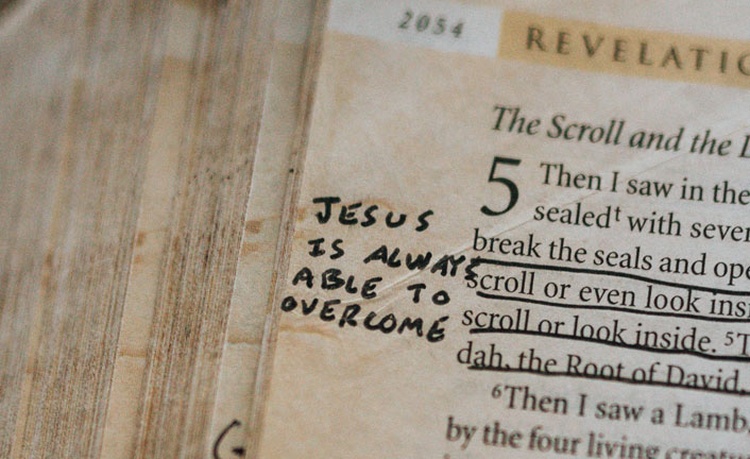 2054
REVELATIO
The Scroll and the
5 Then I saw in the
sealedᵗ with seve
break the seals and ope
scroll or even look insi
scroll or look inside. ⁵T
dah, the Root of David,
⁶Then I saw a Lamb,
by the four living creatu
JESUS
IS ALWAYS
ABLE TO
OVERCOME